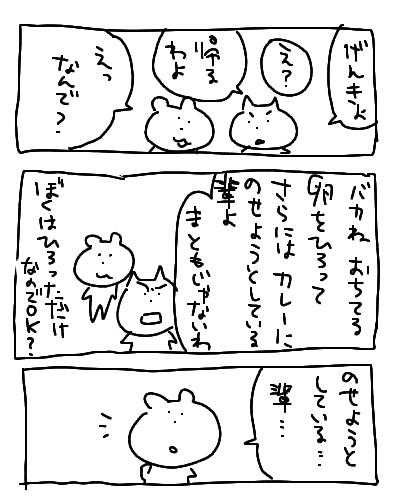 げんきんよ
え?
帰る
わよ
えっ
なんで?
バカね おちてる
卵をひろって
さらには カレーに
のせようとしている
輩よ
まともじゃないわ
ぼくはひろっただけ
なのでOK?
のせようと
している…
輩…